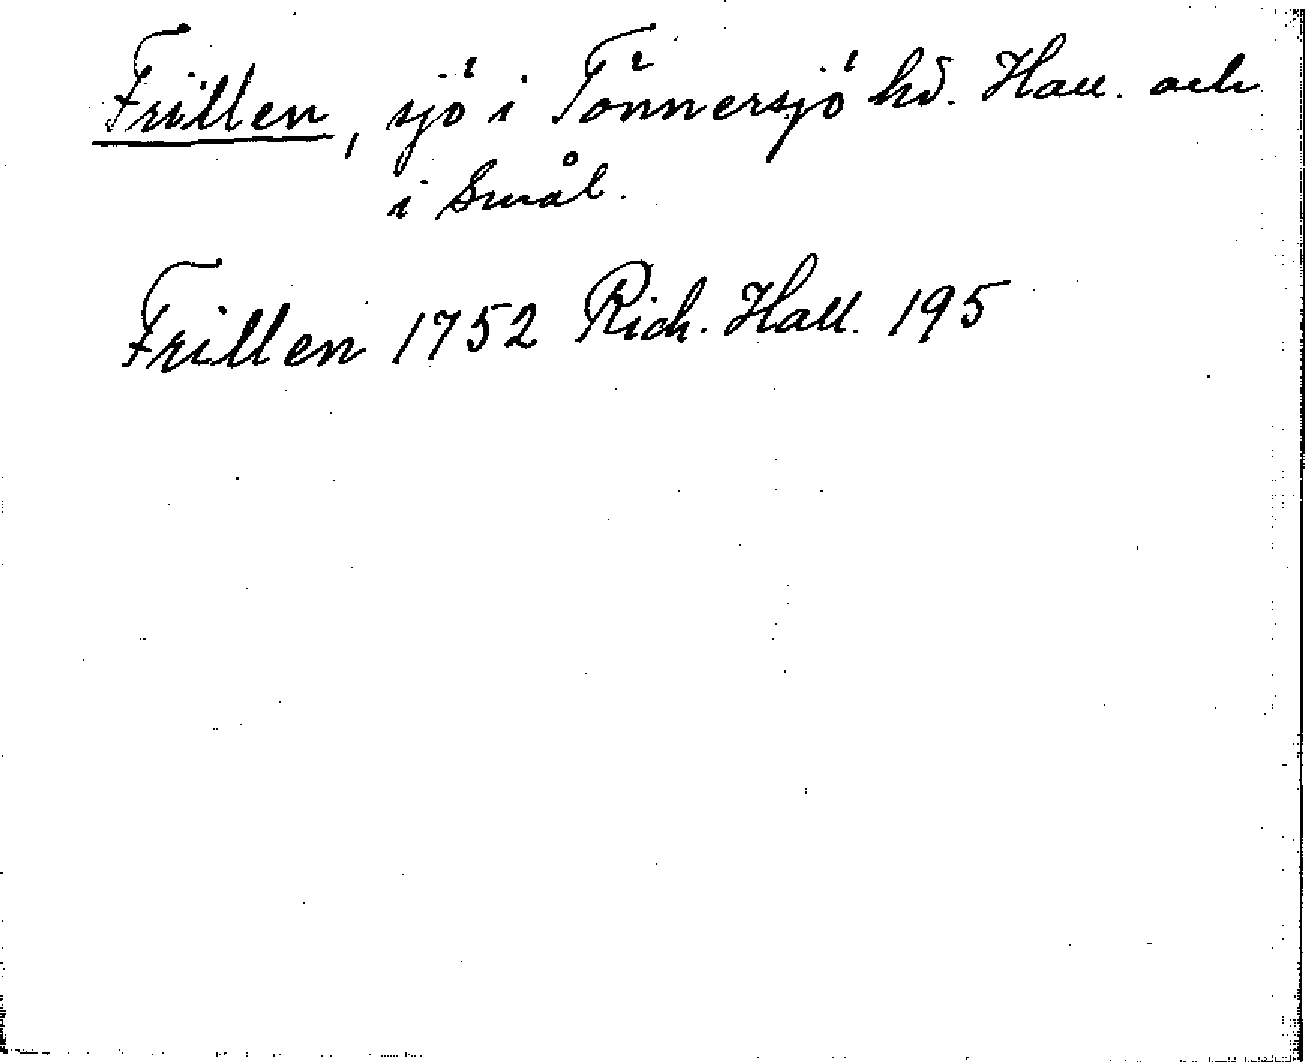 Frillen, sjö i Tönnersjö hd. Hall. och
i Smål.
Frillen 1752 Rich. Hall. 195